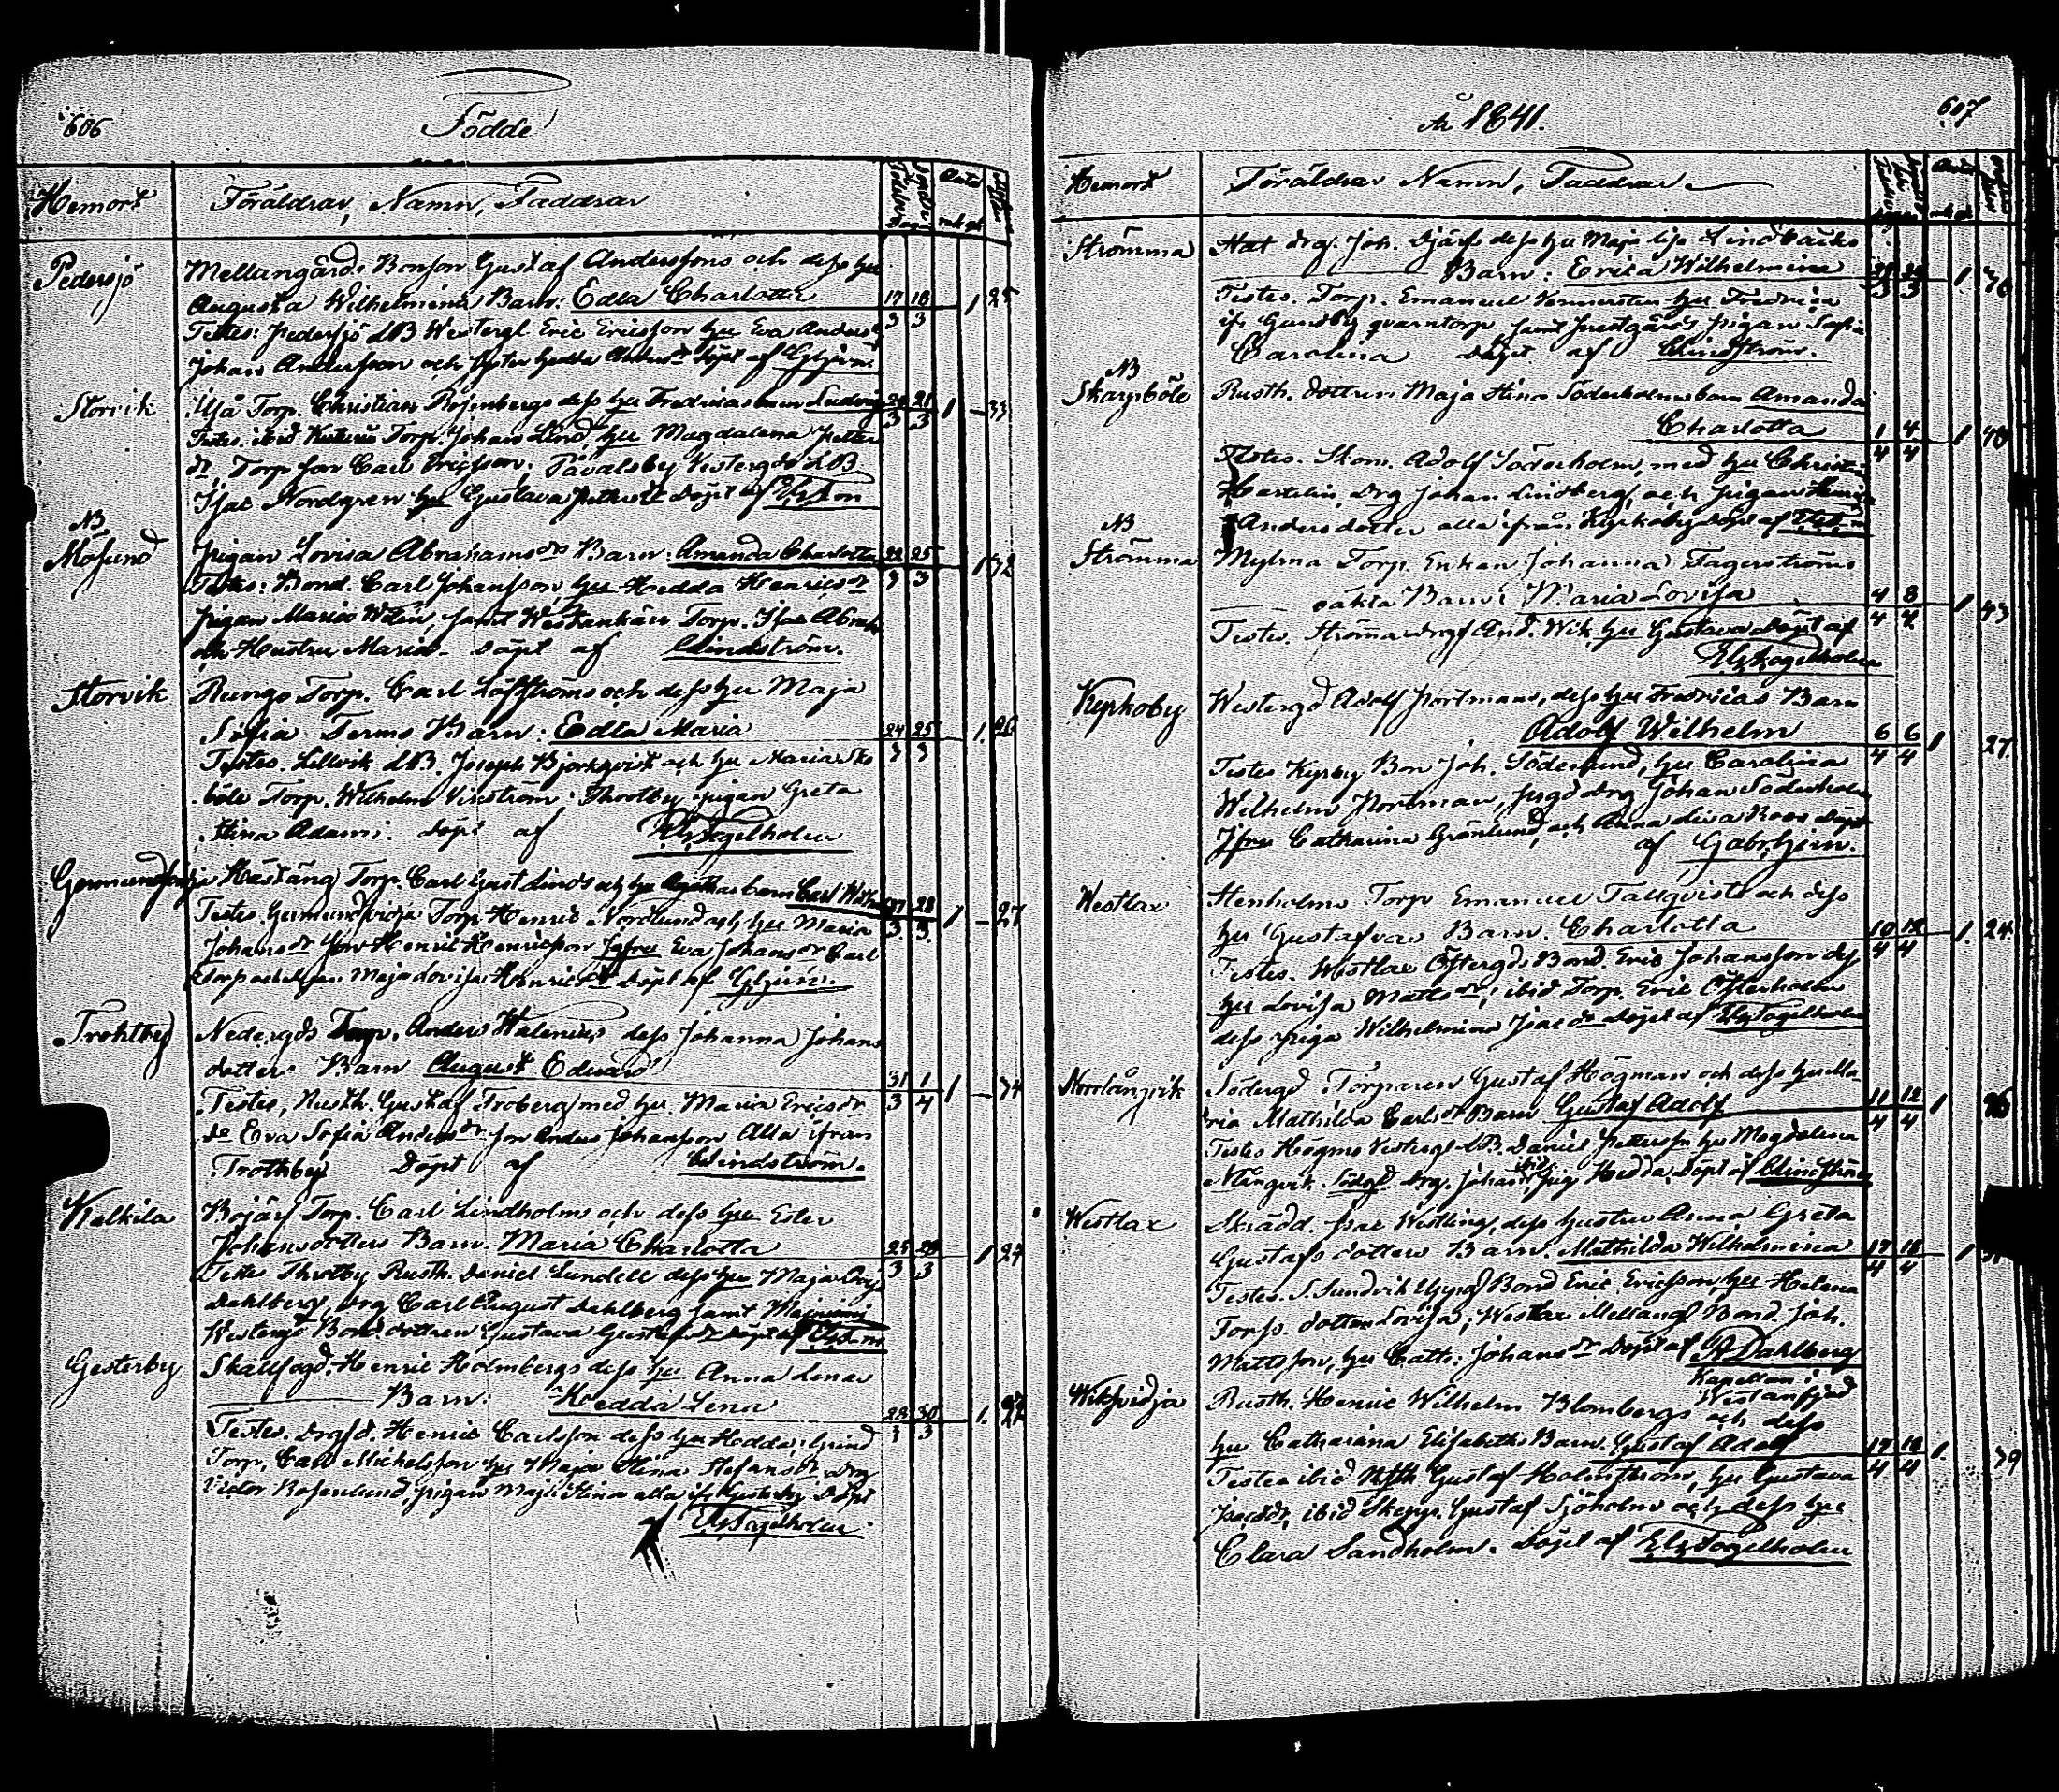 606
Födde
Hemort
Föräldrar, Namn, Faddrar
Pedersjö
Mellangårds Bonson Gustaf Anderssons och dess hu
Augusta Wilhelminas Barn: Edla Charlotta
17 18 1 25
3 3
Testes: Pedersjö LB Westergl Eric Ericsson hu Eva Anders
Johan Andersson och Syster Hedda Döpt af
Storvik
Torp. Christian Rosenbergs dess hu Fredricas barn Ludvig
20 21 1 – 33
3 3
Testes. ibid Torp. Johan Lind, hu Magdalena Petters
dr, Torp son Carl Ericsson. Påvalsby Vestergds LB
Isac Nordgren hu Gustava Döpt af
NB
Mosund
Pigan Lovisa Abrahams dr Barn: Amanda Charlotta
22 25 1 32
3 3
Testes: Bond. Carl Johansson, hu Hedda Henricsdr
Pigan Maria samt Torp. Isac Abrah
Hustru Maria. Döpt af C Lindström.
Storvik
Rungo Torp. Carl Löfströms och dess hu Maja
Sofia Barn: Edla Maria
24 25 1. 26
3 3
Testes. Lillvik LB. Joseph Björkqvist och hu Maria
böle Torp. Wilhelm pigan Greta
Stina Adami. Döpt af Fogelholm
Germundsvidja
Hästäng Torp. Carl Gust Linds och hu Agathas barn Carl Wilh
27 28 1 – 27
3 3
Testes. Germundsvidja Torp. Henric Nordlund och hu Maria
Johansdr Henric Henricsson Eva Johansdr Carl
Maja Lovisa Henricsdr Döpt af
Trohtby
Nedergds Torp. Anders Walenius, dess Johanna Johans
dotters Barn August Edvard
31 1 1 – 34
3 4
Testes, Rusth. Gustaf Froberg med hu. Maria Ericsdr
Eva Sofia Andersdr son Anders Johansson Alla ifrån
Trothby Döpt af C Lindström.
Kalkila
Bojärs Torp. Carl Lindholms och dess hu Ester
Johansdotters Barn. Maria Charlotta
25 28 1 27
3 3
Testes Rusth. Daniel Lundell dess hu Maja
Dahlberg, drg Carl August Dahlberg samt
Westergd Bond. dottren Gustava Döpt af
Gesterby
Skallfogd. Henric Holmbergs dess hu Anna Lenas
Barn: Hedda Lena
28 30 1. 27
3 3
Testes. Henric Carlsson dess hu Hedda,
Torp. Carl Michelsson hu Maja Stina Stefansdr drg
Victor Rosenlund, pigan Maja Stina alla ifr Gesterby Döpt
af Fogelholm
År 1841.
607
Hemort
Föräldrar Namn, Faddrar
Strömma
Stat drg. Joh. dess hu Maja Lisa Lindbäcks
Barn: Erica Wilhelmina
1. 36
3 3
Testes. Torp. Emanuel hu Fredrica
ifr Gundby qvarntorp, samt prestgårds pigan Sofia
Carolina döpt af C Lindström.
NB
Skarpböle
Rusth. dottren Maja Stina Söderholms barn Amanda
Charlotta
1 4 1 40
4 4
Testes. Skom. Adolf Söderholm, med hu Christ
drg Johan Lindberg, och pigan
Andersdotter alla ifrån Kyrkoby Döpt af
NB
Strömma
Torp. Enkan Johanna Fagerströms
oäkta Barn: Maria Lovisa
4 8 1 43
4 4
Testes. Strömma drg And. Wik hu Gustava Döpt af
Fogelholm
Kyrkoby
Westergd Adolf Nortmans, dess hu Fredricas Barn
Adolf Wilhelm
6 6 1 27.
4 4
Testes Kyrby Bon Joh. Söderlund, hu Carolina
Wilhelm Nortman, drg Johan Söderholm
Jfru Catharina Grönlund, och Anna Lisa Roos Döpt
af
Westlax
Stenholms Torp Emanuel Tallqvists och dess
hu Gustafvas Barn. Charlotta
10 12 1. 24.
4 4
Testes. Westlax Östergds Bond. Eric Johansson dess
hu Lovisa Mattsdr, ibid Torp. Eric Österholm
dess piga Wilhelmina Isacsdr Döpt af Fogelholm
Norrlångvik
Södergd Torparen Gustaf Högman och dess hu Ma-
ria Mathilda Carlsdr Barn Gustaf Adolf
11 12 1 26
4 4
Testes Högmo LB. Daniel Pettersson hu Magdalena
Nlångvik Södergd Drg. Johan, ibid pig Hedda, Döpt af C Lindström
Westlax
Skrädd. Isac Westling, dess hustru Anna Greta
Gustafsdotters Barn: Mathilda Wilhelmina
17 18 1
4 4
Testes. S. Sundvik Uppgd Bond Eric Ericsson, hu Helena
Torp. dotter Lovisa; Westlax Mellangd Bond. Joh.
Mattsson, hu Cath: Johansdr Döpt af A Dahlberg
Kapellan i
Westanfjerd
Wiksvidja
Rusth. Henric Wilhelm Blombergs och dess
hu Catharina Elisabeths Barn. Gustaf Adolf
17 18 1. 39
4 4
Testes ibid Rusth Gustaf Holmström, hu Gustava
Isacsdr, ibid Skepp. Gustaf Sjöholm och dess hu
Clara Sandholm. Döpt af Fogelholm